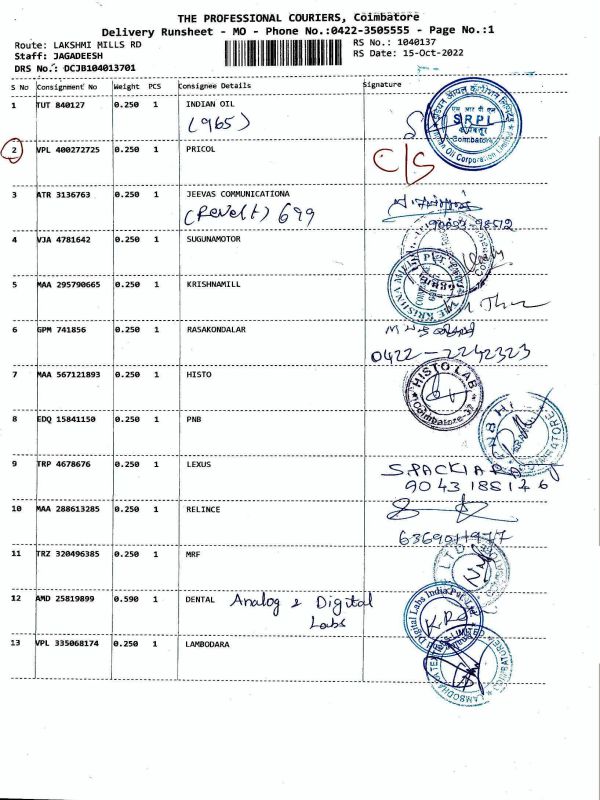 THE PROFESSIONAL COURIERS, Coimbatore
Delivery Runsheet - MO - Phone No.:0422-3505555 - Page No.:1
Route: LAKSHMI MILLS RD RS No.: 1040137
Staff: JAGADEESH RS Date: 15-Oct-2022
DRS No.: DCJB104013701
S No Consignment No Weight PCS Consignee Details Signature
1 TUT 840127 0.250 1 INDIAN OIL
(965)
SRPL
Coimbatore
Indian Oil Corporation Limited
2 VPL 400272725 0.250 1 PRICOL
C/S
3 ATR 3136763 0.250 1 JEEVAS COMMUNICATIONA
(Revelt) 699
4 VJA 4781642 0.250 1 SUGUNAMOTOR
5 MAA 295790665 0.250 1 KRISHNAMILL
6 GPM 741856 0.250 1 RASAKONDALAR
0422-2242323
7 MAA 567121893 0.250 1 HISTO
HISTO LAB
Coimbatore-37
8 EDQ 15841150 0.250 1 PNB
PNB H
9 TRP 4678676 0.250 1 LEXUS
9043188126
10 MAA 288613285 0.250 1 RELINCE
11 TRZ 320496385 0.250 1 MRF
LTD
12 AMD 25819899 0.590 1 DENTAL Analog & Digital
Labs
Digital Labs India Pvt. Ltd
13 VPL 335068174 0.250 1 LAMBODARA